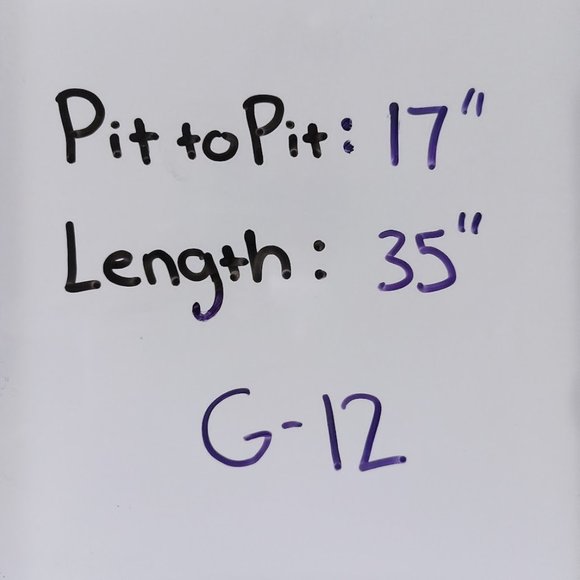 Pit to Pit: 17"
Length: 35"
G-12